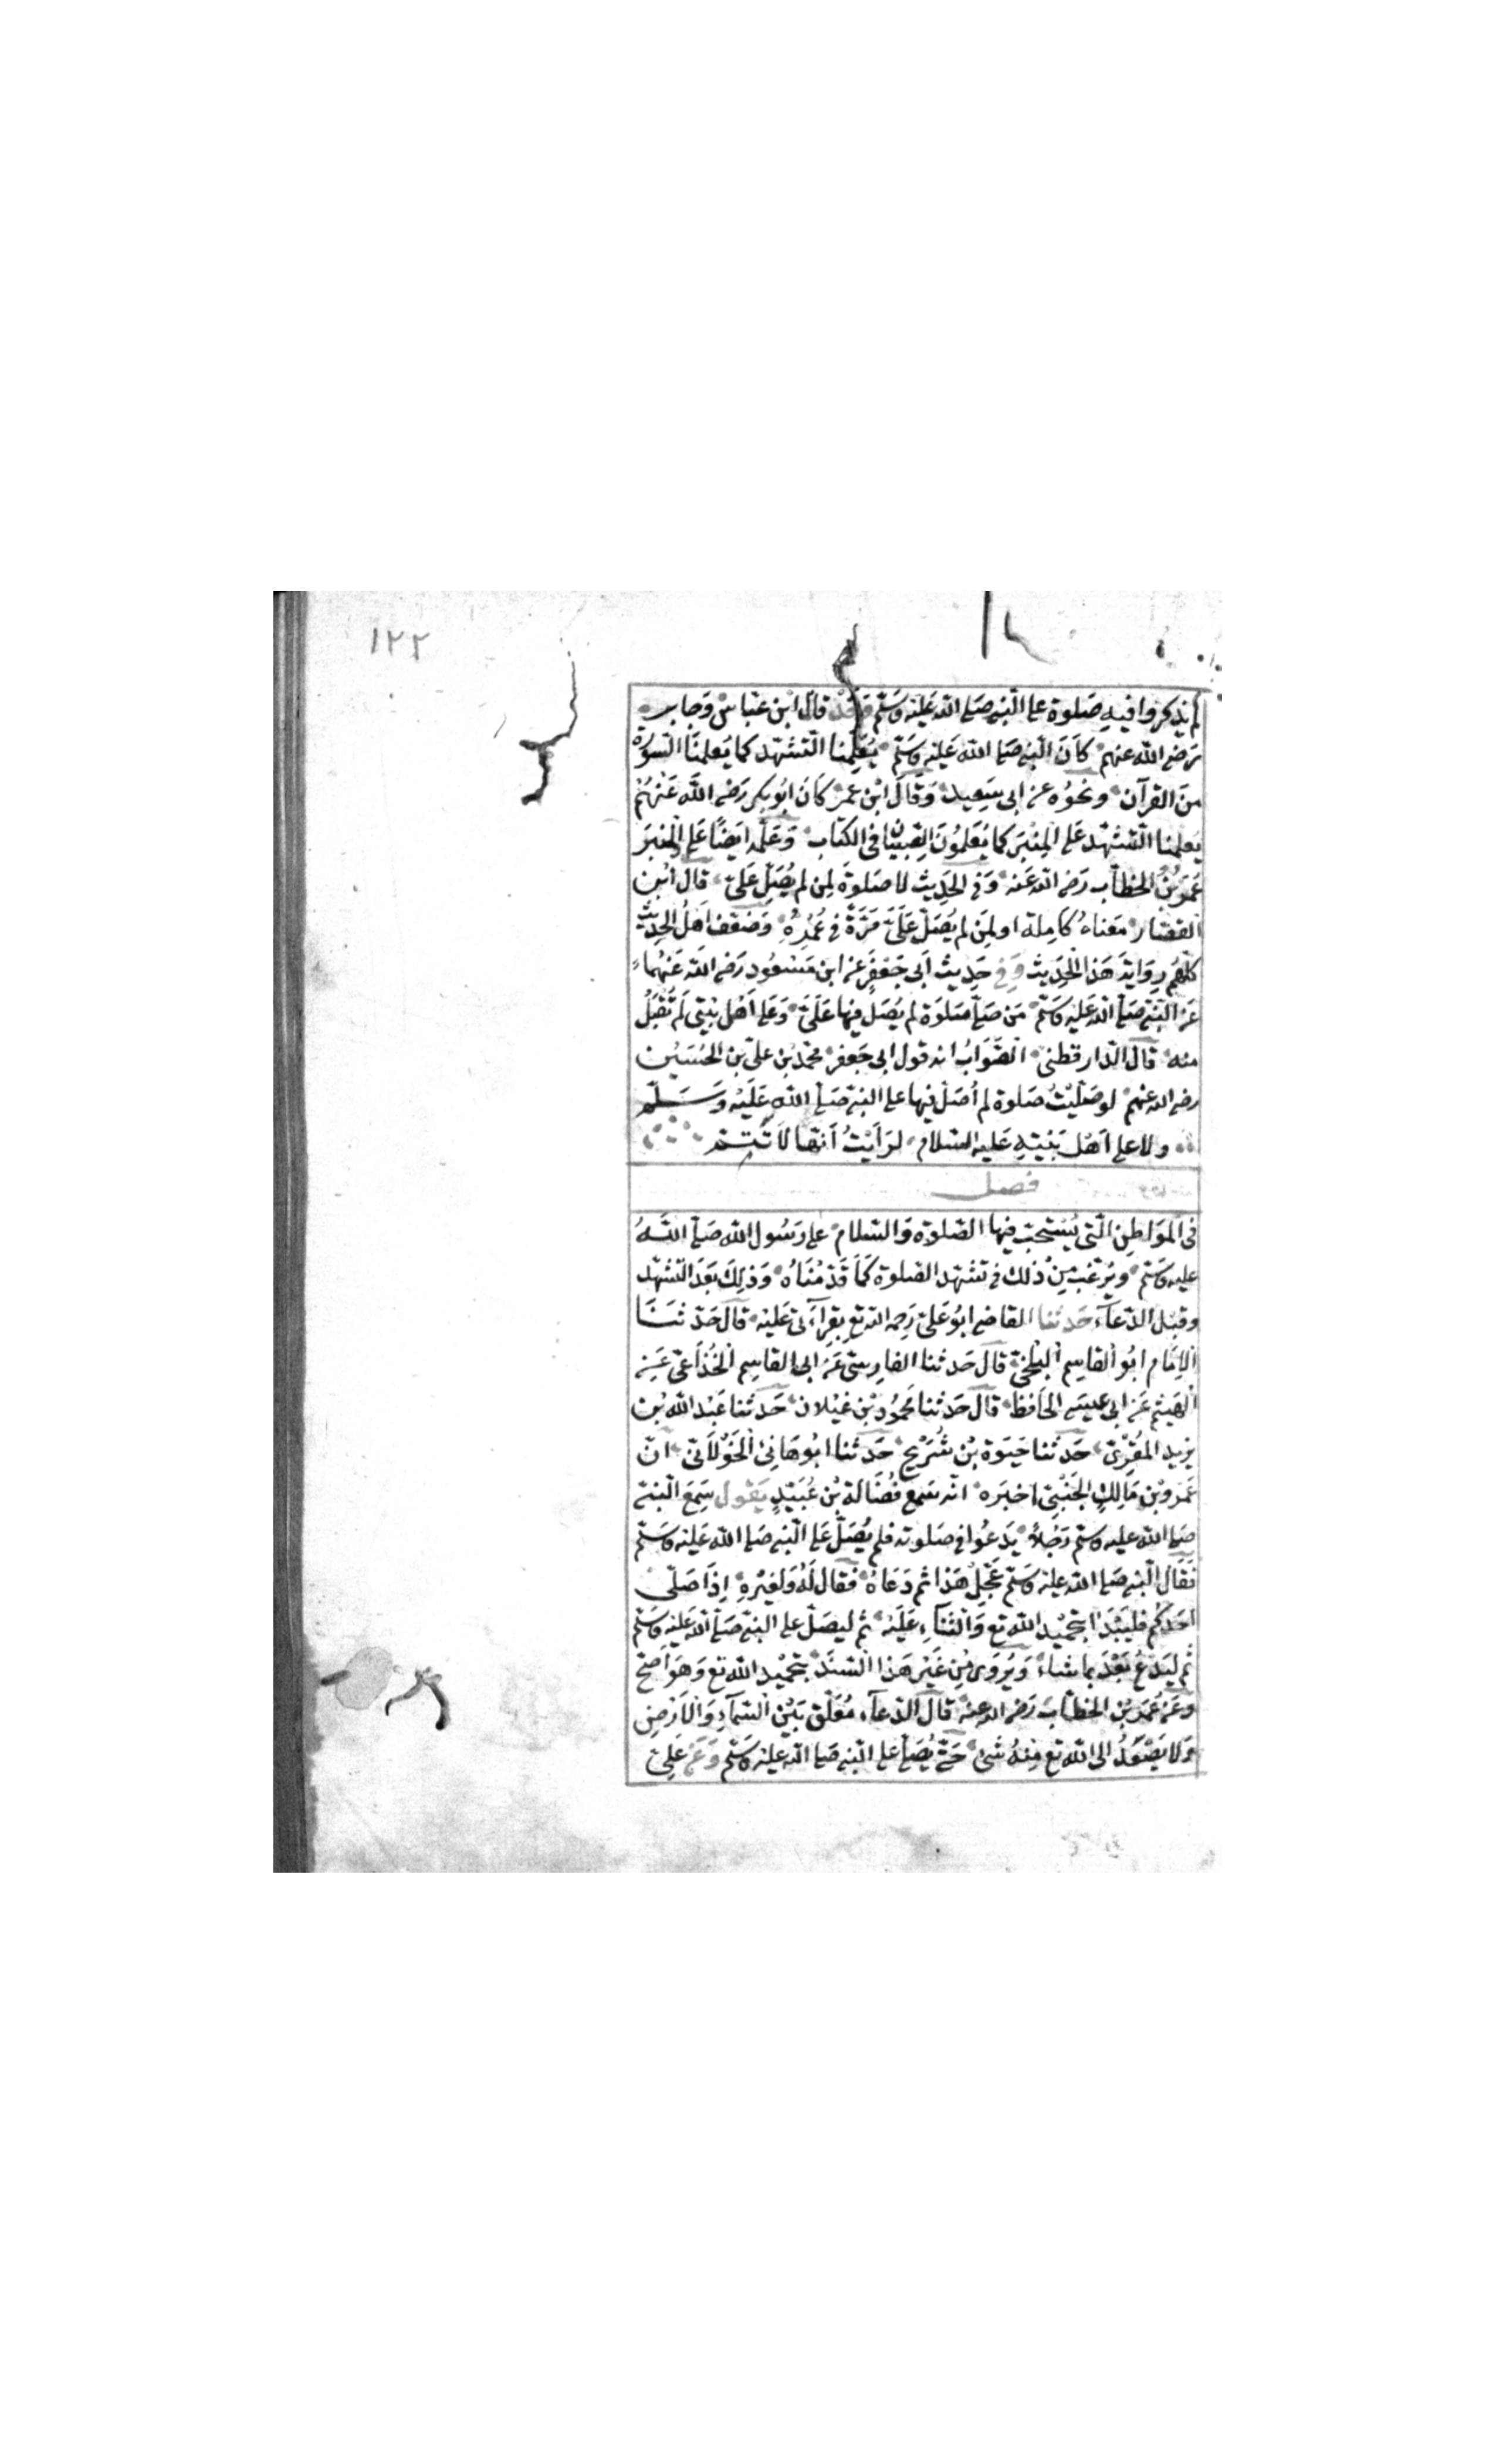 ١٢٢
لم يذكروا فيه صلوة على النبي صلى الله عليه وسلم وقد قال ابن عباس وجابر
رضي الله عنهم كان النبي صلى الله عليه وسلم يعلمنا التشهد كما يعلمنا السورة
من القرآن ونحوه عن ابى سعيد وقال ابن عمر كان ابو بكر رضي الله عنهم
يعلمنا التشهد على المنبر كما يعلمون الصبيان في الكتاب وعلمه ايضا على المنبر
عمر بن الخطاب رضي الله عنه وفي الحديث لا صلوة لمن لم يصل علي قال ابن
القصار معناه كاملة او لمن لم يصل علي مرة في عمره وضعف اهل الحديث
كلهم رواية هذا الحديث وفي حديث ابى جعفر عن ابن مسعود رضي الله عنهما
عن النبي صلى الله عليه وسلم من صلى صلوة لم يصل فيها علي وعلى اهل بيتي لم تقبل
منه قال الدارقطني الصواب انه قول ابى جعفر محمد بن علي بن الحسين
رضي الله عنهم لو صليت صلوة لم أصل فيها على النبي صلى الله عليه وسلم
ولا على اهل بيته عليه السلام لرأيت أنها لا تتم
فصل
في المواطن التي يستحب فيها الصلوة والسلام على رسول الله صلى الله
عليه وسلم ويرغب من ذلك في تشهد الصلوة كما قدمناه وذلك بعد التشهد
وقبل الدعاء حدثنا القاضي ابو علي رحمه الله تع بقراءتي عليه قال حدثنا
الإمام ابو القاسم البلخي قال حدثنا الفارسي عن ابى القاسم الخزاعي عن
الهيثم عن ابى عيسى الحافظ قال حدثنا محمود بن غيلان حدثنا عبد الله بن
يزيد المقرئ حدثنا حيوة بن شريح حدثنا ابو هانئ الخولاني ان
عمرو بن مالك الجنبي اخبره انه سمع فضالة بن عبيد يقول سمع النبي
صلى الله عليه وسلم رجلا يدعوا في صلوته فلم يصل على النبي صلى الله عليه وسلم
فقال النبي صلى الله عليه وسلم عجل هذا ثم دعاه فقال له ولغيره إذا صلى
احدكم فليبدا بتحميد الله تع والثناء عليه ثم ليصل على النبي صلى الله عليه وسلم
ثم ليدع بعد بما شاء ويروى من غير هذا السند بتمجيد الله تع وهو أصح
وعن عمر بن الخطاب رضي الله عنه قال الدعاء معلق بين السماء والارض
ولا يصعد الى الله تع منه شئ حتى يصلى على النبي صلى الله عليه وسلم وعن علي